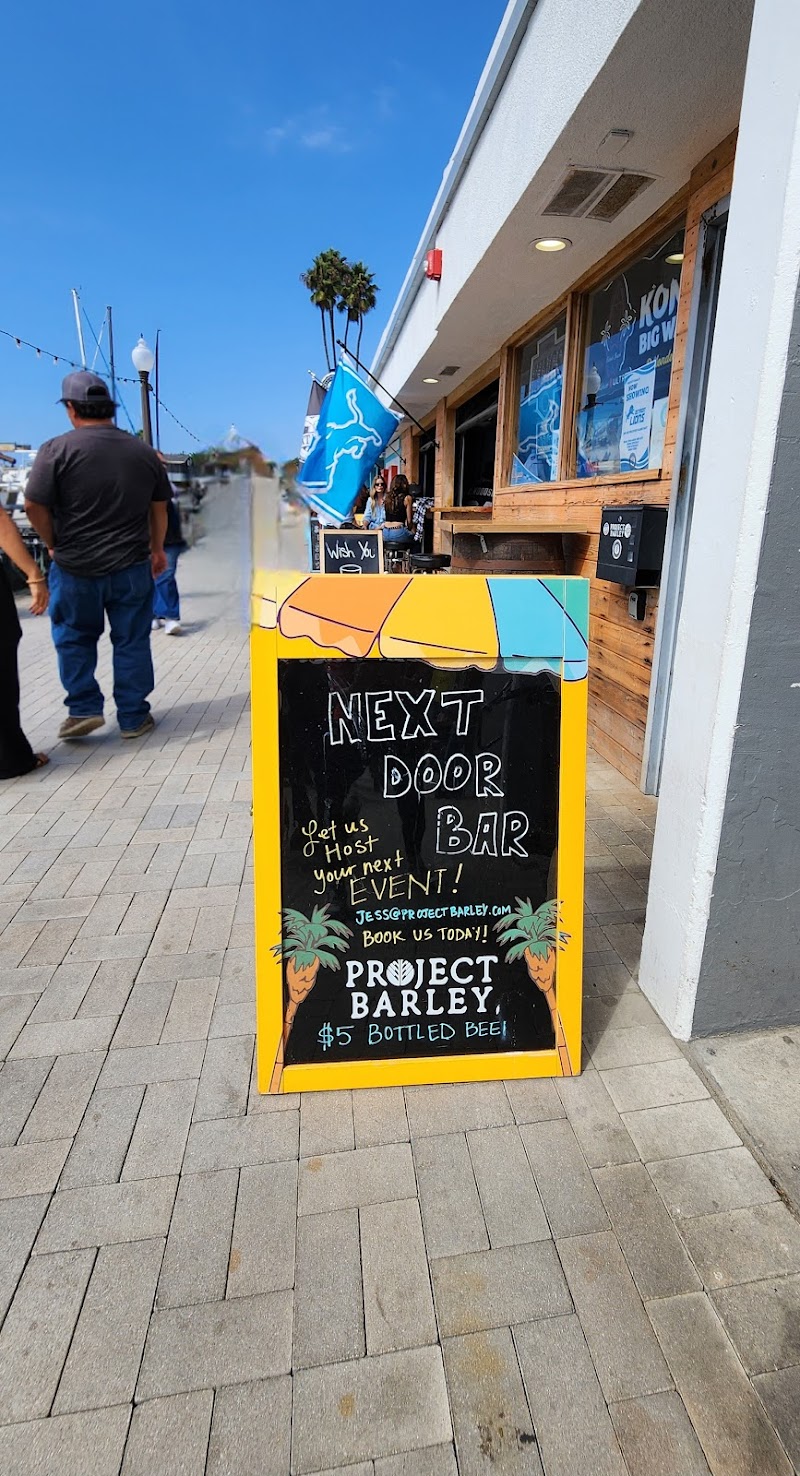 KON
BIG W
NOW
SHOWING
LIONS
PROJECT
BARLEY
Wish You
NEXT
DOOR
BAR
Let us
Host
your next
EVENT!
JESS@PROJECTBARLEY.COM
BOOK US TODAY!
PROJECT
BARLEY
$5 BOTTLED BEE